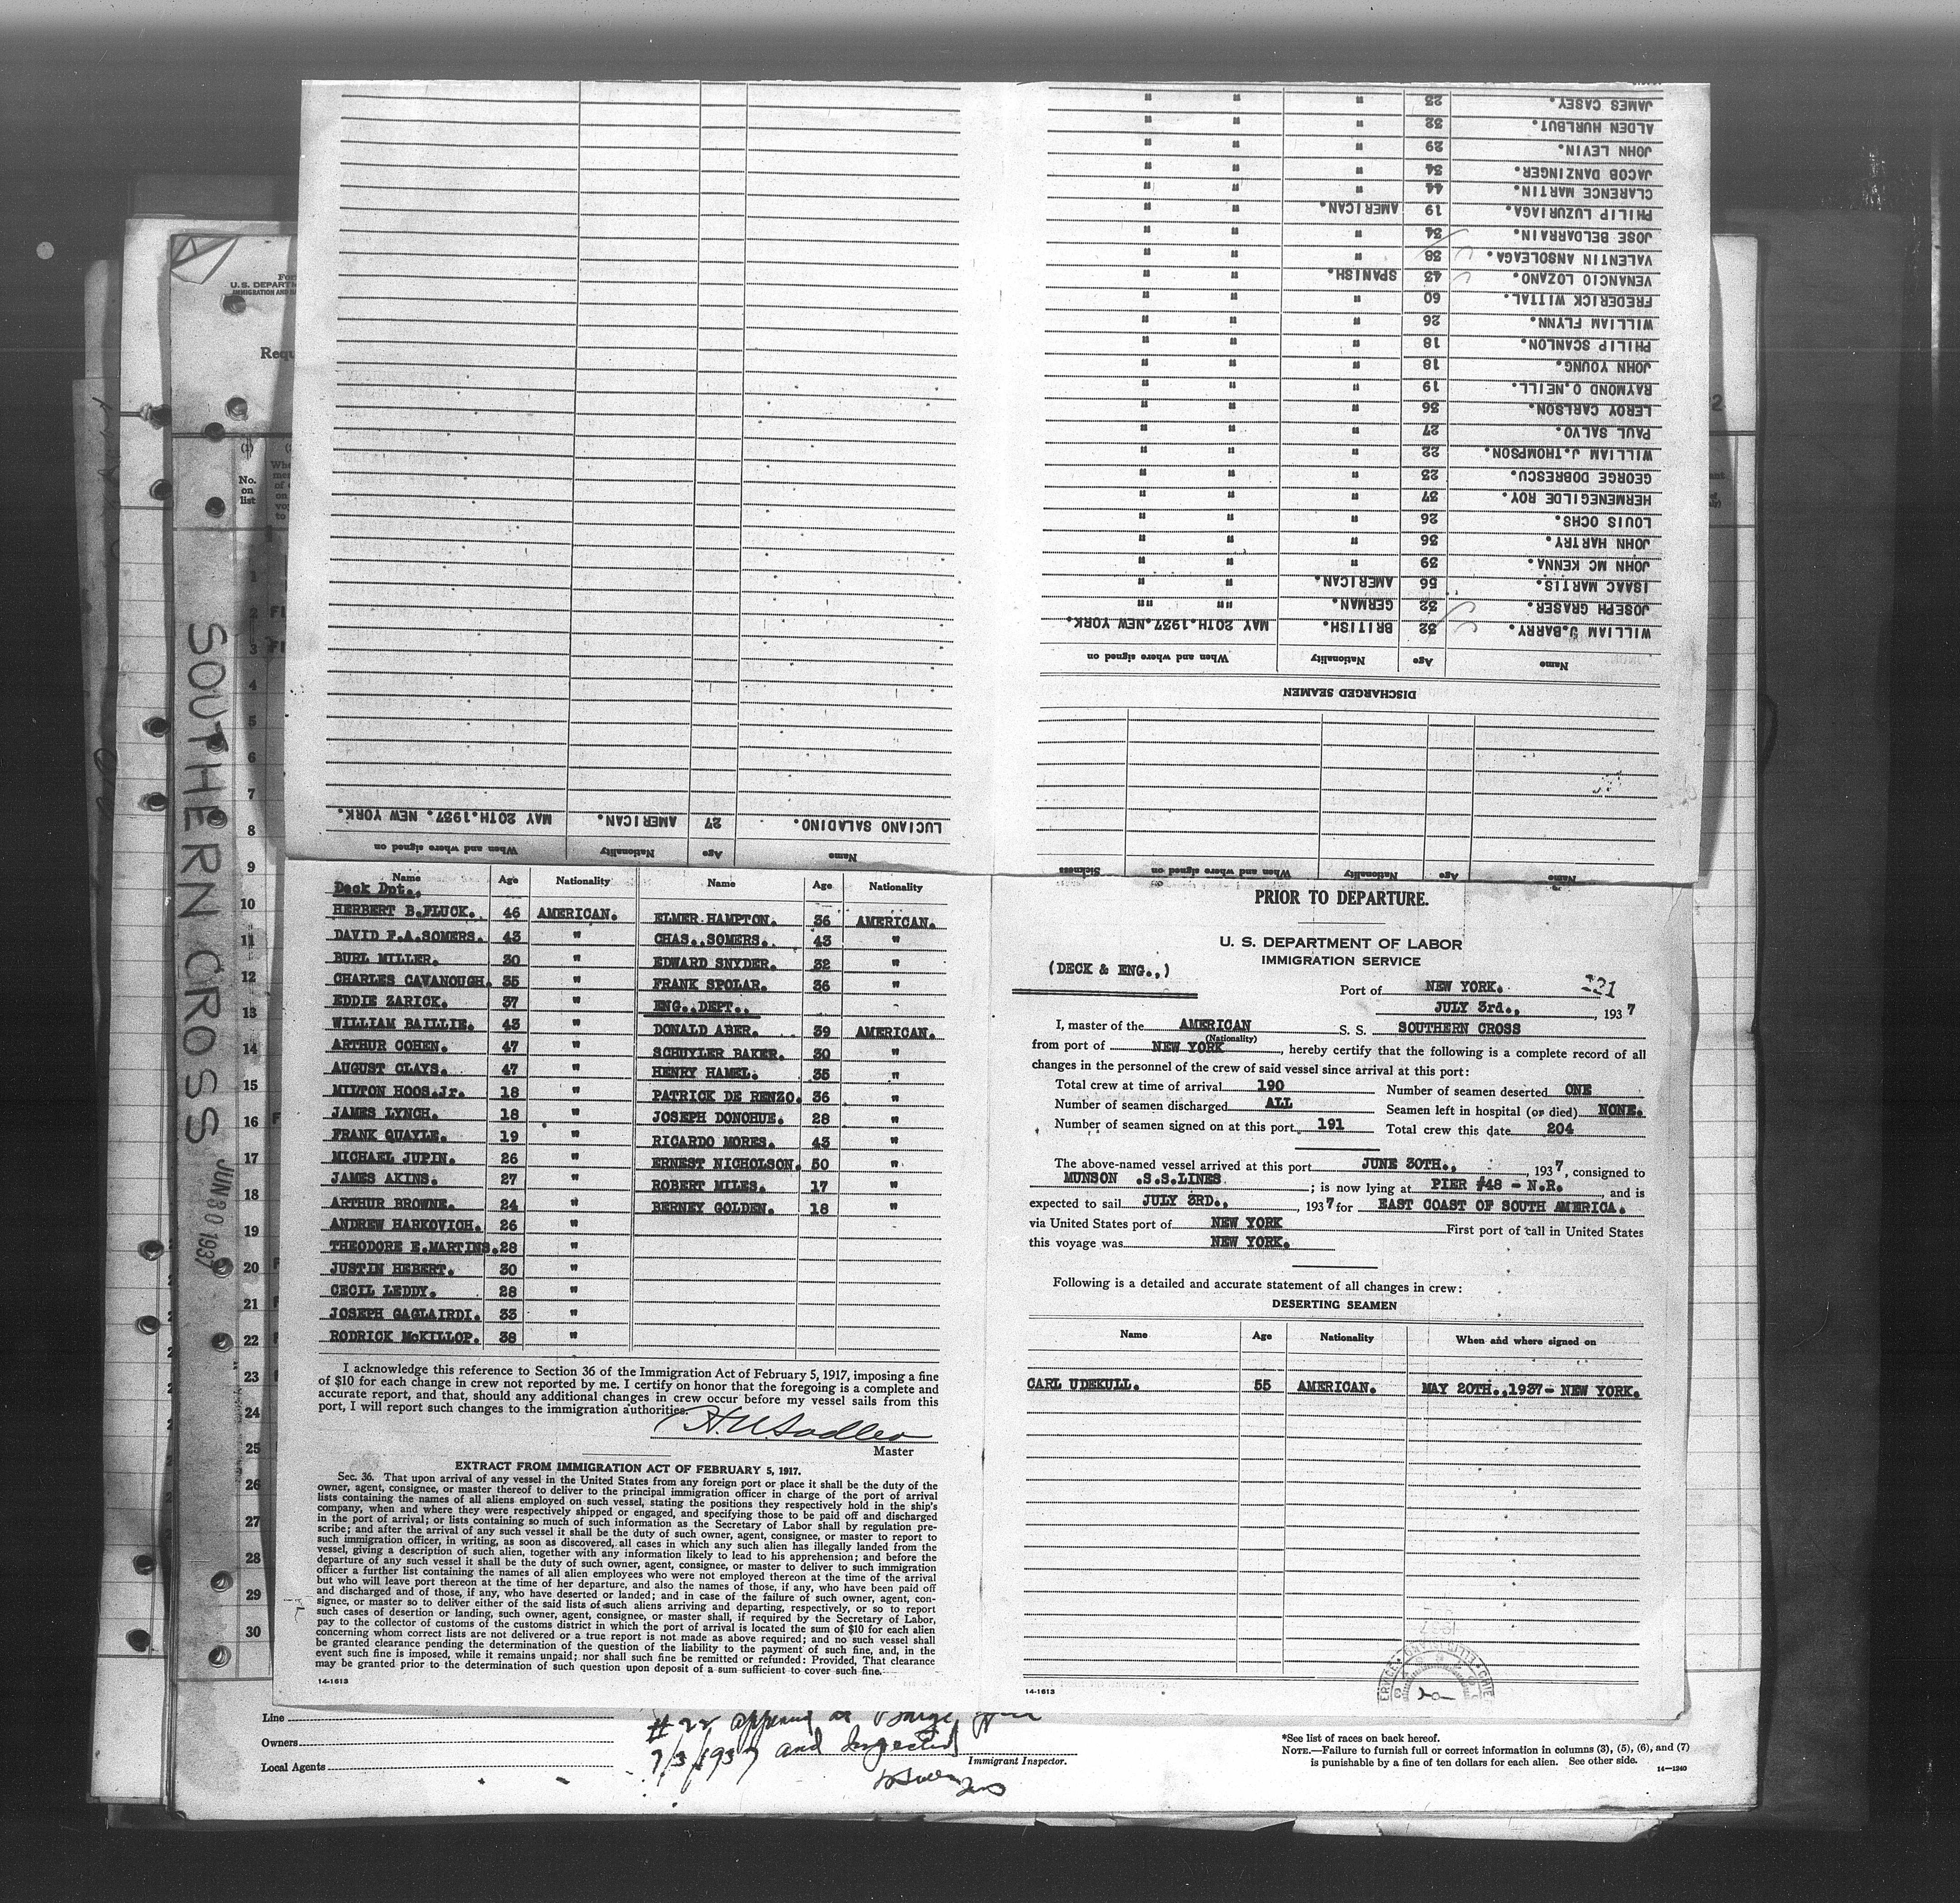 U.S. DEPARTM
IMMIGRATION AND NA
Requ
No.
on
list
SOUTHERN CROSS
JUN 30 1937
DISCHARGED SEAMEN
Name Age Nationality When and where signed on
WILLIAM J.BARRY. 32 BRITISH. MAY 20TH.1937.NEW YORK.
JOSEPH GRASER. 32 GERMAN. "" ""
ISAAC MARTIS. 56 AMERICAN. " "
JOHN MC KENNA. 39 " " "
JOHN HARTRY. 36 " " "
LOUIS OCHS. 26 " " "
HERMENEGILDE ROY. 37 " " "
GEORGE DOBRESCU. 23 " " "
WILLIAM J.THOMPSON. 22 " " "
PAUL SALVO. 27 " " "
LEROY CARLSON. 36 " " "
RAYMOND O.NEILL. 19 " " "
JOHN YOUNG. 18 " " "
PHILIP SCANLON. 18 " " "
WILLIAM FLYNN. 26 " " "
FREDERICK WITTAL. 60 " " "
VENANCIO LOZANO. 43 SPANISH. " "
VALENTIN ANSOLEAGA. 38 " " "
JOSE BELDARRAIN. 34 " " "
PHILIP LUZURIAGA. 19 AMERICAN. " "
CLARENCE MARTIN. 44 " " "
JACOB DANZINGER. 34 " " "
JOHN LEVIN. 29 " " "
ALDEN HURLBUT. 32 " " "
JAMES CASEY. 23 " " "
Name Age Nationality When and where signed on Sickness
Name Age Nationality When and where signed on
LUCIANO SALADINO. 27 AMERICAN. MAY 20TH.1937. NEW YORK.
Name Age Nationality Name Age Nationality
Deck Dpt.,
HERBERT B.FLUCK. 46 AMERICAN. ELMER HAMPTON. 36 AMERICAN.
DAVID F.A.SOMERS. 43 " CHAS. SOMERS. 43 "
BURL MILLER. 30 " EDWARD SNYDER. 32 "
CHARLES CAVANOUGH. 35 " FRANK SPOLAR. 36 "
EDDIE ZARICK. 37 " ENG.,DEPT.,
WILLIAM BAILLIE. 43 " DONALD ABER. 39 AMERICAN.
ARTHUR COHEN. 47 " SCHUYLER BAKER. 30 "
AUGUST CLAYS. 47 " HENRY HAMEL. 35 "
MILTON HOOS.Jr. 18 " PATRICK DE RENZO. 36 "
JAMES LYNCH. 18 " JOSEPH DONOHUE. 28 "
FRANK QUAYLE. 19 " RICARDO MORES. 43 "
MICHAEL JUPIN. 26 " ERNEST NICHOLSON. 50 "
JAMES AKINS. 27 " ROBERT MILES. 17 "
ARTHUR BROWNE. 24 " BERNEY GOLDEN. 18 "
ANDREW HARKOVICH. 26 "
THEODORE E.MARTINS. 28 "
JUSTIN HEBERT. 30 "
CECIL LEDDY. 28 "
JOSEPH GAGLAIRDI. 33 "
RODRICK McKILLOP. 38 "
I acknowledge this reference to Section 36 of the Immigration Act of February 5, 1917, imposing a fine
of $10 for each change in crew not reported by me. I certify on honor that the foregoing is a complete and
accurate report, and that, should any additional changes in crew occur before my vessel sails from this
port, I will report such changes to the immigration authorities.
Master
EXTRACT FROM IMMIGRATION ACT OF FEBRUARY 5, 1917.
Sec. 36. That upon arrival of any vessel in the United States from any foreign port or place it shall be the duty of the
owner, agent, consignee, or master thereof to deliver to the principal immigration officer in charge of the port of arrival
lists containing the names of all aliens employed on such vessel, stating the positions they respectively hold in the ship's
company, when and where they were respectively shipped or engaged, and specifying those to be paid off and discharged
in the port of arrival; or lists containing so much of such information as the Secretary of Labor shall by regulation pre-
scribe; and after the arrival of any such vessel it shall be the duty of such owner, agent, consignee, or master to report to
such immigration officer, in writing, as soon as discovered, all cases in which any such alien has illegally landed from the
vessel, giving a description of such alien, together with any information likely to lead to his apprehension; and before the
departure of any such vessel it shall be the duty of such owner, agent, consignee, or master to deliver to such immigration
officer a further list containing the names of all alien employees who were not employed thereon at the time of the arrival
but who will leave port thereon at the time of her departure, and also the names of those, if any, who have been paid off
and discharged and of those, if any, who have deserted or landed; and in case of the failure of such owner, agent, con-
signee, or master so to deliver either of the said lists of such aliens arriving and departing, respectively, or so to report
such cases of desertion or landing, such owner, agent, consignee, or master shall, if required by the Secretary of Labor,
pay to the collector of customs of the customs district in which the port of arrival is located the sum of $10 for each alien
concerning whom correct lists are not delivered or a true report is not made as above required; and no such vessel shall
be granted clearance pending the determination of the question of the liability to the payment of such fine, and, in the
event such fine is imposed, while it remains unpaid; nor shall such fine be remitted or refunded: Provided, That clearance
may be granted prior to the determination of such question upon deposit of a sum sufficient to cover such fine.
14-1613
PRIOR TO DEPARTURE.
U. S. DEPARTMENT OF LABOR
IMMIGRATION SERVICE
(DECK & ENG.,)
Port of NEW YORK. 221
JULY 3rd., , 1937
I, master of the AMERICAN S. S. SOUTHERN CROSS
(Nationality)
from port of NEW YORK, hereby certify that the following is a complete record of all
changes in the personnel of the crew of said vessel since arrival at this port:
Total crew at time of arrival 190 Number of seamen deserted ONE
Number of seamen discharged ALL Seamen left in hospital (or died) NONE.
Number of seamen signed on at this port 191 Total crew this date 204
The above-named vessel arrived at this port JUNE 30TH., , 1937, consigned to
MUNSON .S.S.LINES ; is now lying at PIER #48 - N.R. , and is
expected to sail JULY 3RD., , 1937 for EAST COAST OF SOUTH AMERICA.
via United States port of NEW YORK First port of call in United States
this voyage was NEW YORK.
Following is a detailed and accurate statement of all changes in crew:
DESERTING SEAMEN
Name Age Nationality When and where signed on
CARL UDEKULL. 55 AMERICAN. MAY 20TH.,1937- NEW YORK.
14-1613
Line
Owners
Local Agents
#22
7/3/1937 and Inspected
Immigrant Inspector.
*See list of races on back hereof.
NOTE.—Failure to furnish full or correct information in columns (3), (5), (6), and (7)
is punishable by a fine of ten dollars for each alien. See other side.
14-1240